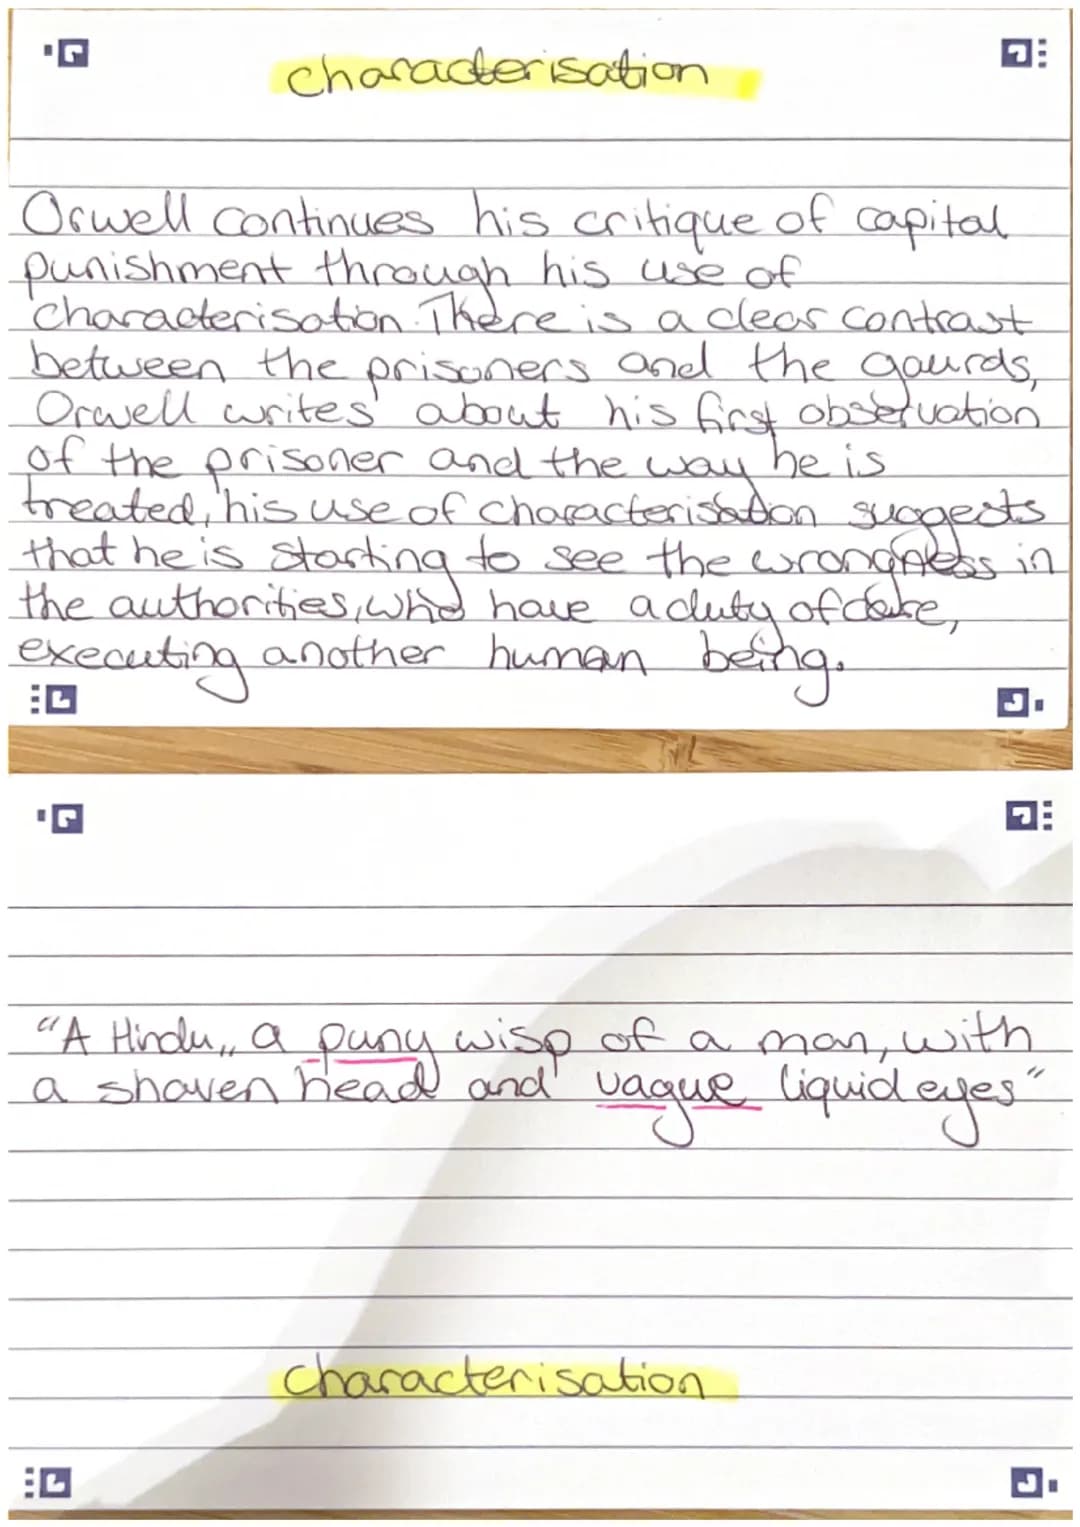 characterisation
Orwell continues his critique of capital
punishment through his use of
characterisation. There is a clear contrast
between the prisoners and the gaurds,
Orwell writes about his first observation
of the prisoner and the way he is
treated, his use of characterisation suggests
that he is starting to see the wrongness in
the authorities, who have a duty of care,
executing another human being.
"A Hindu,, a puny wisp of a man, with
a shaven head and vague liquid eyes"
characterisation